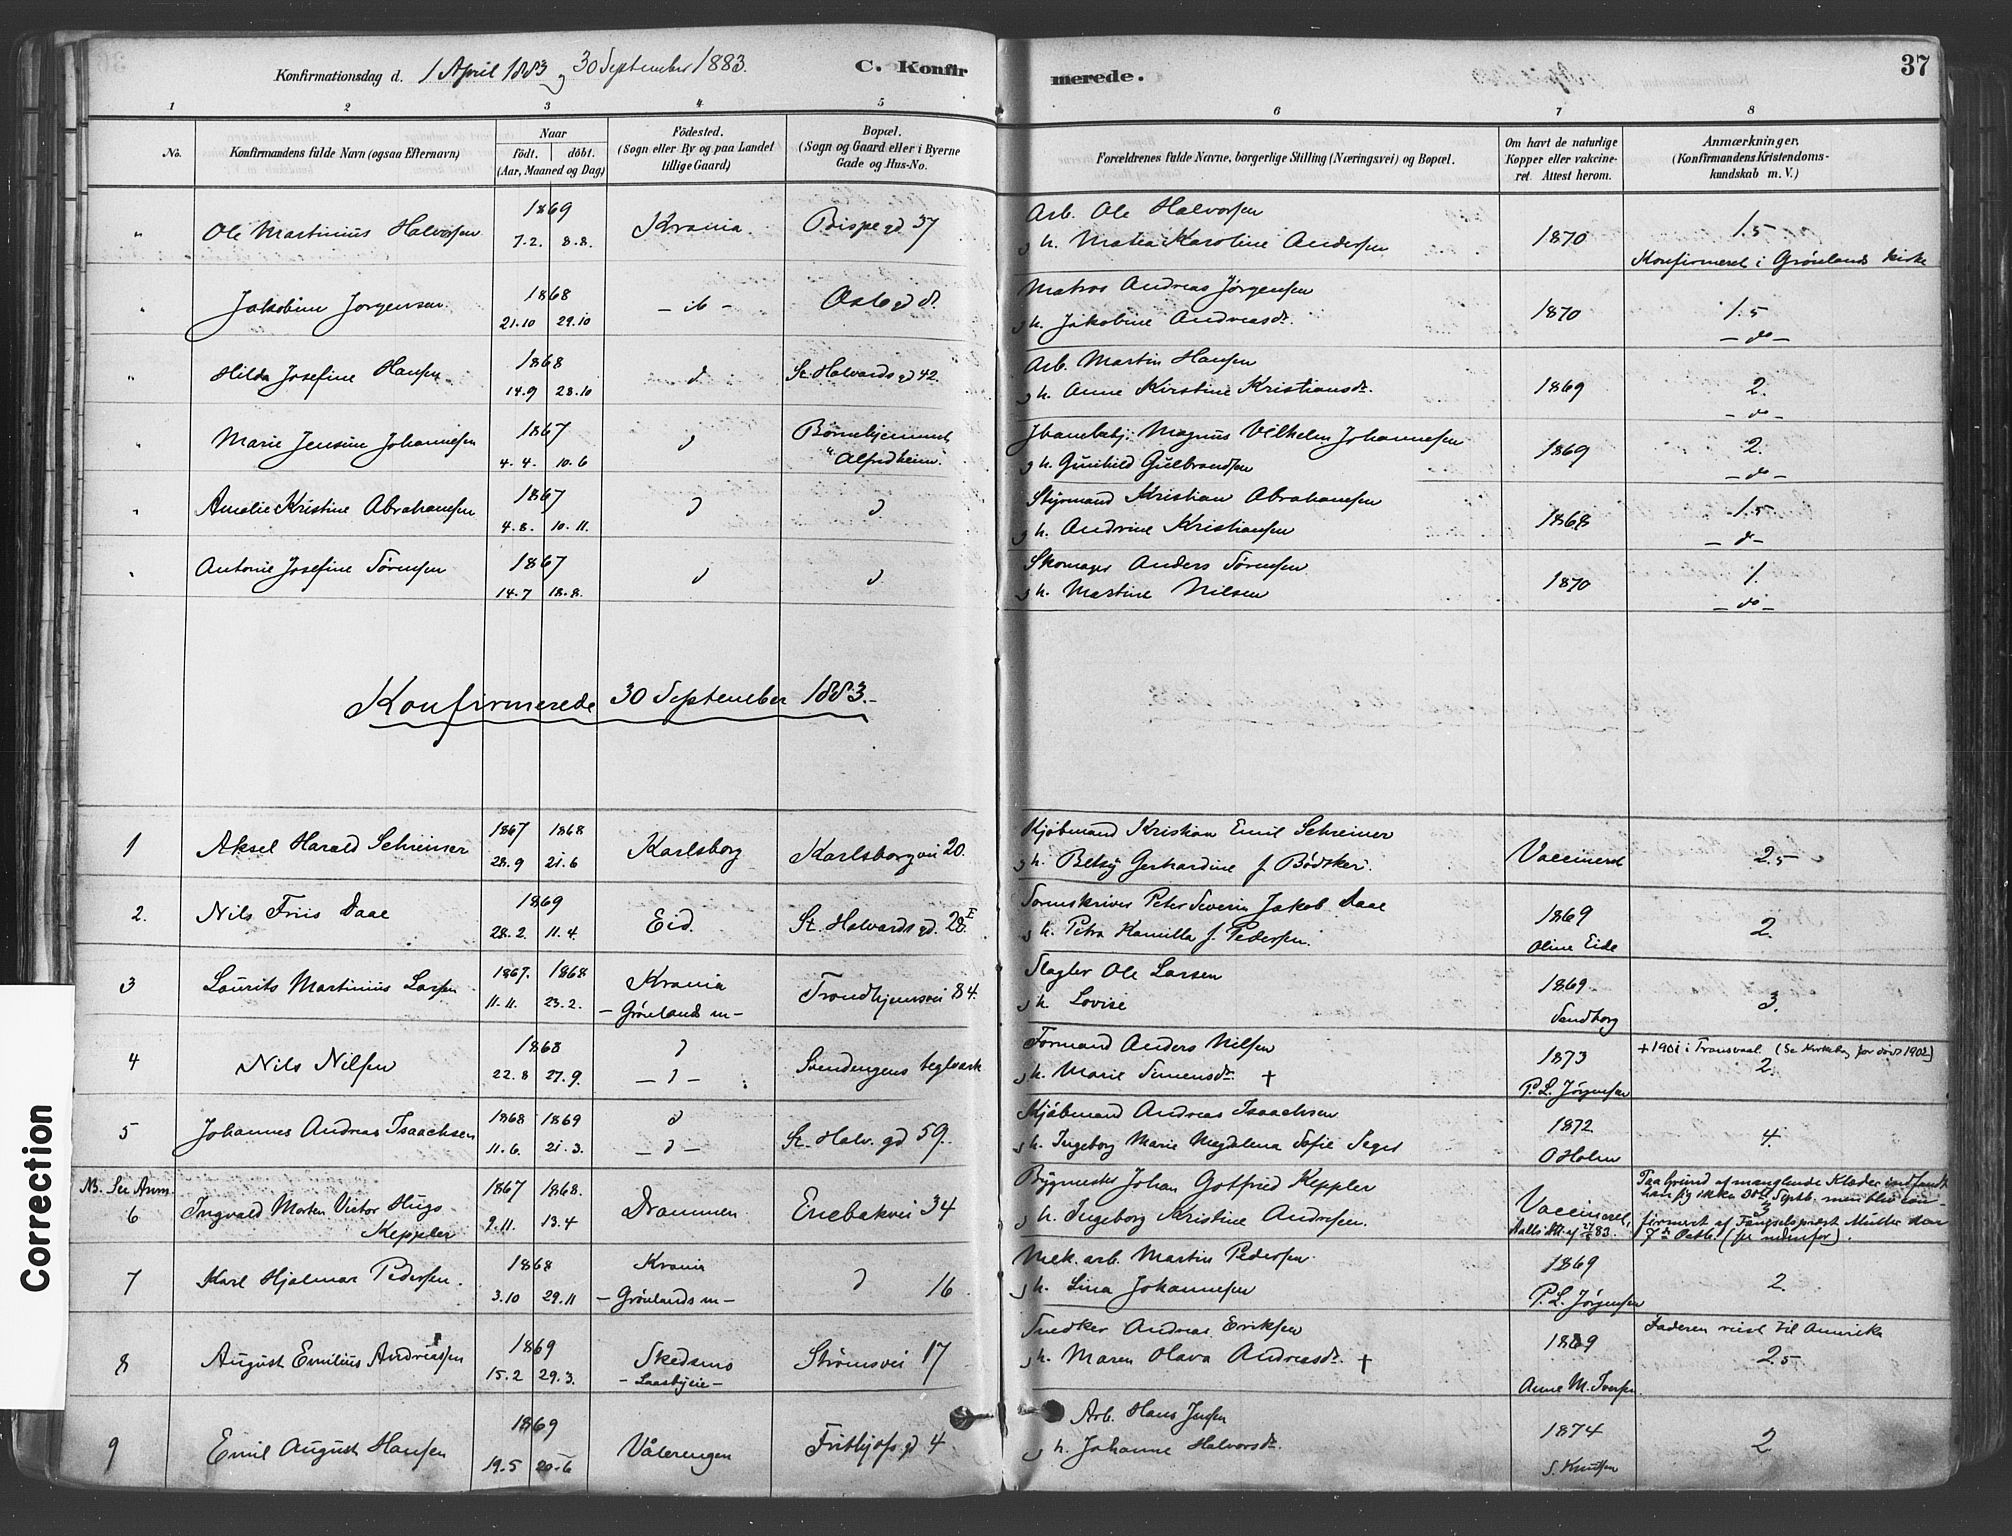 Konfirmationsdag d. 1 April 1883 og 30 September 1883. C. Konfir merede. 37
1 2 3 4 5 6 7 8
No. Konfirmandens fulde Navn (ogsaa Efternavn) Naar födt. döbt. (Aar, Maaned og Dag) Födested. (Sogn eller By og paa Landet tillige Gaard) Bopæl. (Sogn og Gaard eller i Byerne Gade og Hus-No. Forældrenes fulde Navne, borgerlige Stilling (Næringsvei) og Bopæl. Om havt de naturlige Kopper eller vaccineret. Attest herom. Anmærkninger. (Konfirmandens Kristendomskundskab m. V.)
" Ole Martinius Halvorsen 1869 7.2. 8.8. Krania. Bispegd 37 Arb. Ole Halvorsen
og h. Matea Karoline Andersen 1870 1.5
Konfirmeret i Grønlands kirke
" Jakobine Jorgensen 1868 21.10 29.10 - ib - Oslogd 8. Matros Andreas Jørgensen
og h. Jakobine Andreasdr. 1870 1.5
- do -
" Hilda Josefine Hansen 1868 14.9 28.10 d St. Halvards gd 42. Arb. Martin Hansen
og h. Anne Kirstine Kristiansdr. 1869 2.
- do -
" Marie Jensine Johannesen 1867 4.4. 10.6 d Børnehjemmet "Alfredheim". Jbanebetj. Magnus Vilhelm Johannesen
og h. Gunhild Gulbrandsen 1869 2.
- do -
" Amalie Kristine Abrahamsen 1867 4.8. 10.11. d d Styrmand Kristian Abrahamsen
og h. Andrine Kristiansen 1868 1.5
- d -
" Antonie Josefine Sørensen 1867 14.7 18.8. d d Skomager Anders Sørensen
og h. Martine Nilsen 1870 1.
- do -
Konfirmerede 30 September 1883.-
1 Aksel Harald Schreiner 1867 1868 28.9 21.6 Karlsborg Karlsborgvei 20. Kjøbmand Kristian Emil Schreiner
og h. Betsy Gerhardine f. Bødtker Vaccineret 2.5
2. Nils Friis Daae 1869 28.2. 11.4. Eid. St. Halvards gd. 28.I Sorenskriver Peter Severin Jakob Daae
og h. Petra Kamilla f. Pedersen. 1869 Oline Eide 2.
3 Laurits Martinius Larsen 1867. 1868 11.11. 23.2. Krania - Grønlands m - Trondhjemsvei 84. Slagter Ole Larsen
og h. Lovise 1869 Sandborg 3.
4 Nils Nilsen 1868 22.8 27.9. d - d - Svendengens teglværk Formand Anders Nilsen
og h. Marie Simensdr. + 1873 P. L. Jørgensen + 1901 i Transvaal. (Se Kirkebog for døde 1902)
2.
5 Johannes Andreas Isaachsen 1868 1869 11.6. 21.3. d - d - St. Halv. gd 59. Kjøbmand Andreas Isaachsen
og h. Ingeborg Marie Magdalena Sofie Seges 1872 O Holm 4.
NB. Se Anm.
6 Ingvald Morten Victor Hugo Keppler 1867 1868. 9.11. 13.4 Drammen Enebakvei 34 Bygmester Johan Gotfried Keppler
og h. Ingeborg Kristine Andresen. Vaccineret, Paa Grund af manglende Klæder indfandt
han sig ikke 30te Septb. men blev con-
3
firmeret af Fængselspræst
7de Octb. (se nedenfor).
7 Karl Hjalmar Pedersen. 1868 3.10 29.11 Krania - Grønlands m - d 16 Mek. arb. Martin Pedersen
og h. Lina Johannesen 1869 P. L. Jørgensen 2.
8 August Emilius Andreassen 1869 15.2 29.3. Skedsmo Strømsvei 17 Snedker Andreas Eriksen
og h. Maren Olava Andreasdr. + 1869 Anne M. Iversen. Faderen reist til Amerika
2.5
9 Emil August Hansen 1869 19.5 20.6 Vålerengen Frithjofs gd 4 Arb. Hans Jensen
og h. Johanne Halvorsdr. 1874 S. Knutsen 2
Correction